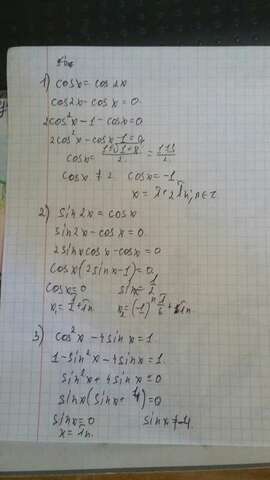 1) cosx = cos2x
cos2x - cosx = 0.
2cos²x - 1 - cosx = 0
2cos²x - cosx - 1 = 0
cosx = (1±√1+8)/2 = (1±3)/2
cosx ≠ 2. cosx = -1
x = π+2πn, n∈z
2) sin2x = cosx
sin2x - cosx = 0
2sinxcosx - cosx = 0
cosx(2sinx-1) = 0
cosx = 0 sinx = 1/2
3) cos²x - 4sinx = 1
1 - sin²x - 4sinx = 1.
sin²x + 4sinx = 0
sinx(sinx + 4) = 0
sinx = 0 sinx ≠ -4.
x = πn.